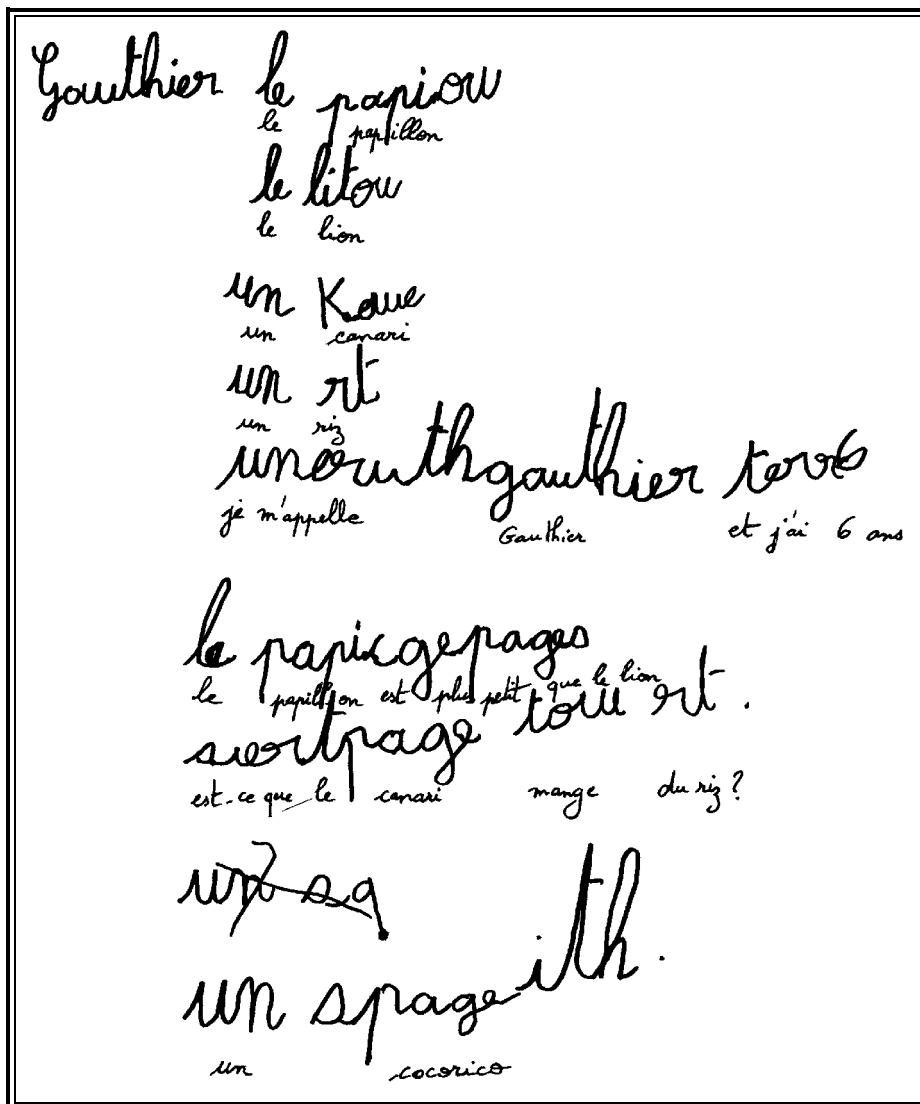 Gauthier le papiou
le papillon
le litou
le lion
un Kaue
un canari
un rt
un riz
unoruthgauthier terr6
je m'appelle Gauthier et j'ai 6 ans
le papicgepages
le papillon est plus petit que le lion
suortpage touu rt.
est-ce que le canari mange du riz ?
un sq
un spageith.
un cocorico